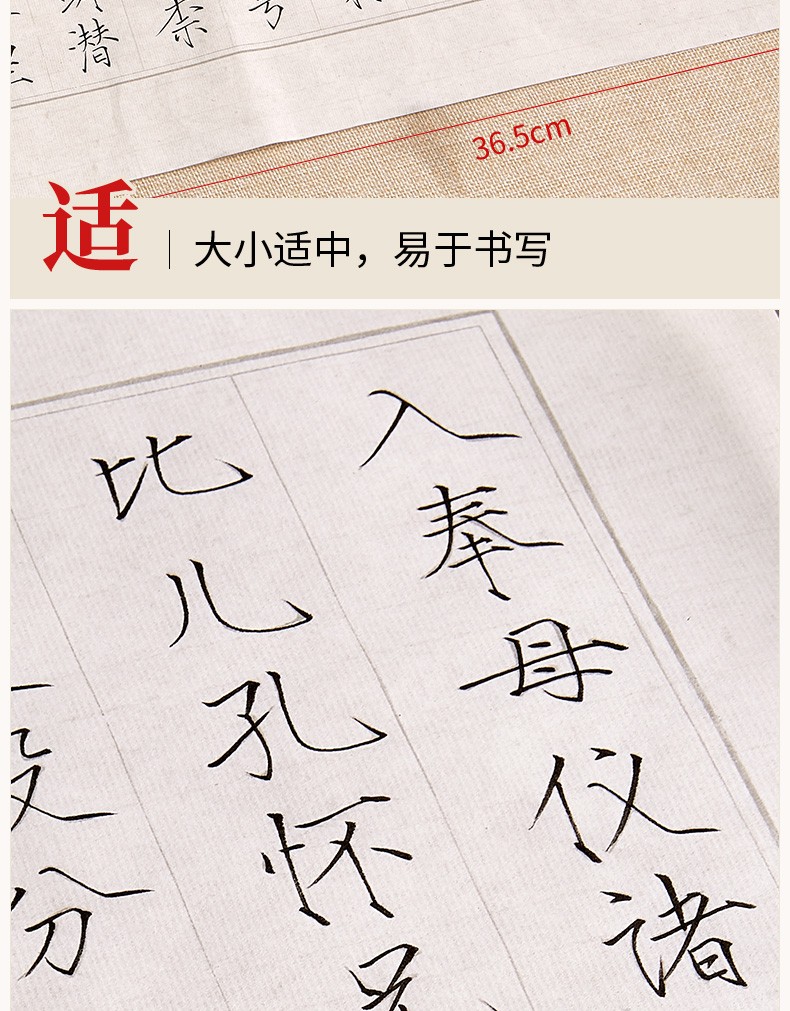 号
柰
潜
36.5cm
适
大小适中，易于书写
入奉母仪诸
比儿孔怀
分